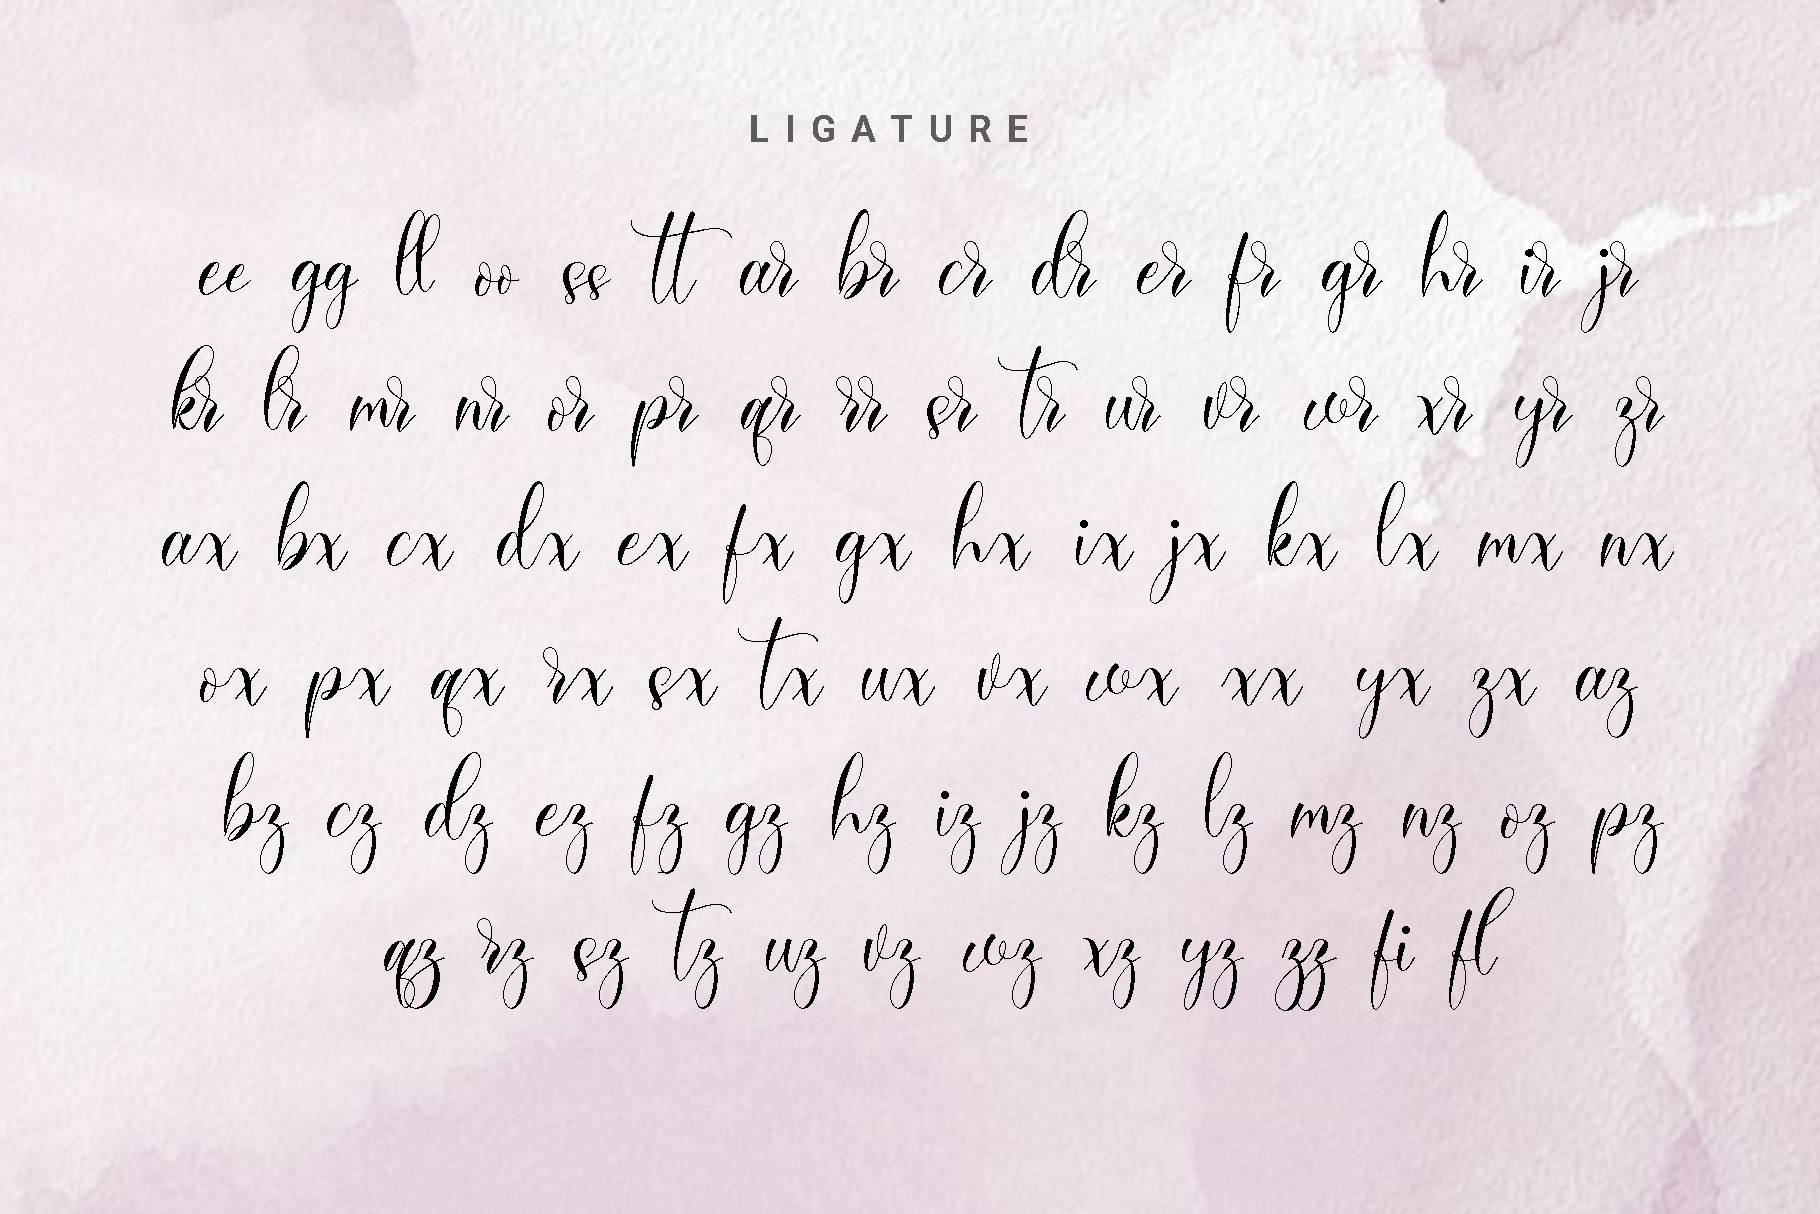 LIGATURE
ee gg ll oo ss tt ar br cr dr er fr gr hr ir jr
kr lr mr nr or pr qr rr sr tr ur vr wr xr yr zr
ax bx cx dx ex fx gx hx ix jx kx lx mx nx
ox px qx rx sx tx ux vx wx xx yx zx az
bz cz dz ez fz gz hz iz jz kz lz mz nz oz pz
qz rz sz tz uz vz wz xz yz zz fi fl